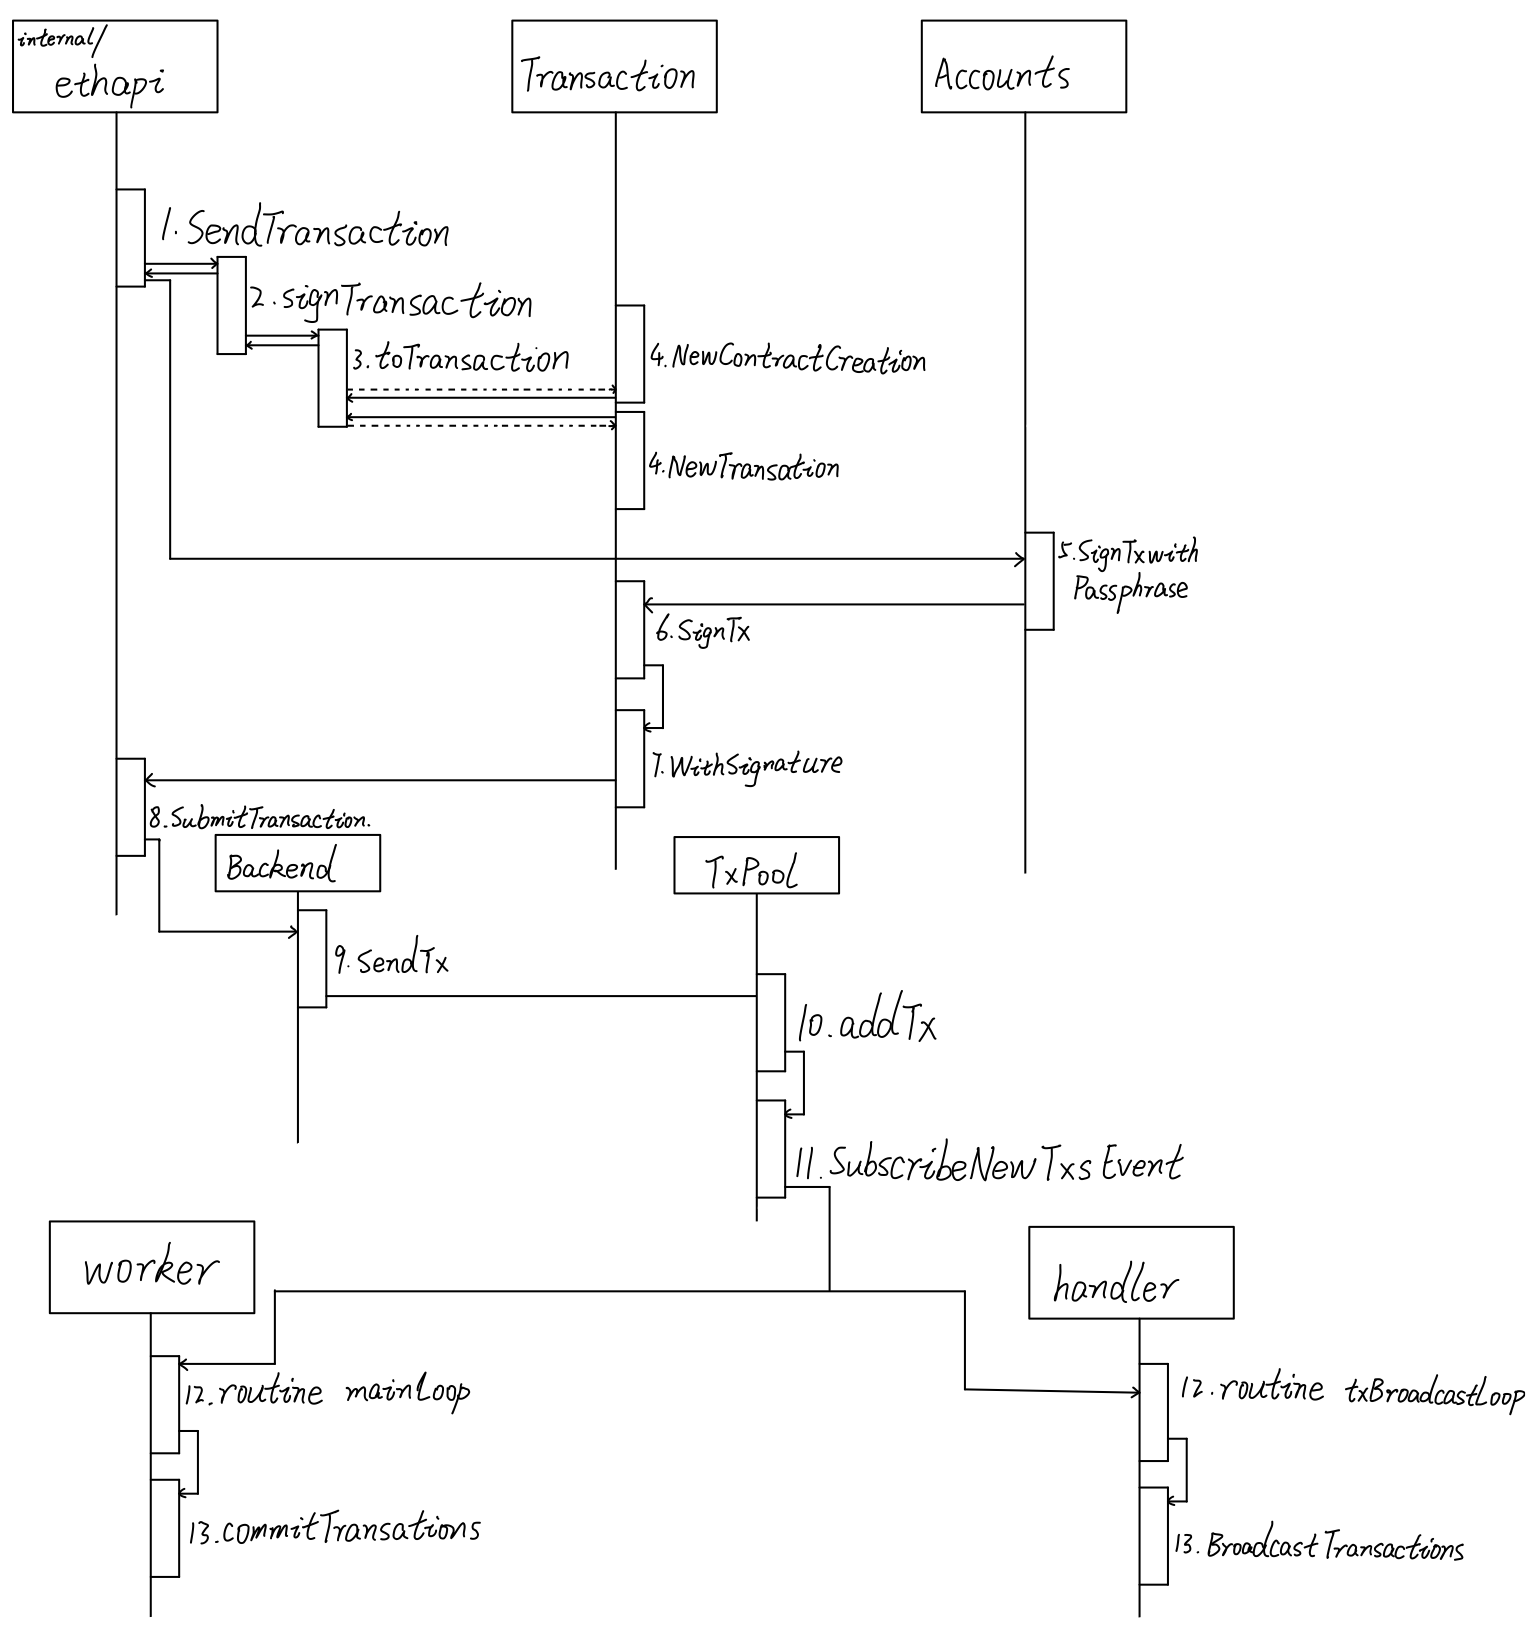 internal/
ethapi
Transaction
Accounts
1.SendTransaction
2.signTransaction
3.toTransaction
4.NewContractCreation
4.NewTransation
5.SignTxwith
Passphrase
6.SignTx
7.WithSignature
8.SubmitTransaction.
Backend
TxPool
9.SendTx
10.addTx
11.SubscribeNewTxsEvent
worker
handler
12.routine mainLoop
12.routine txBroadcastLoop
13.commitTransations
13.BroadcastTransactions